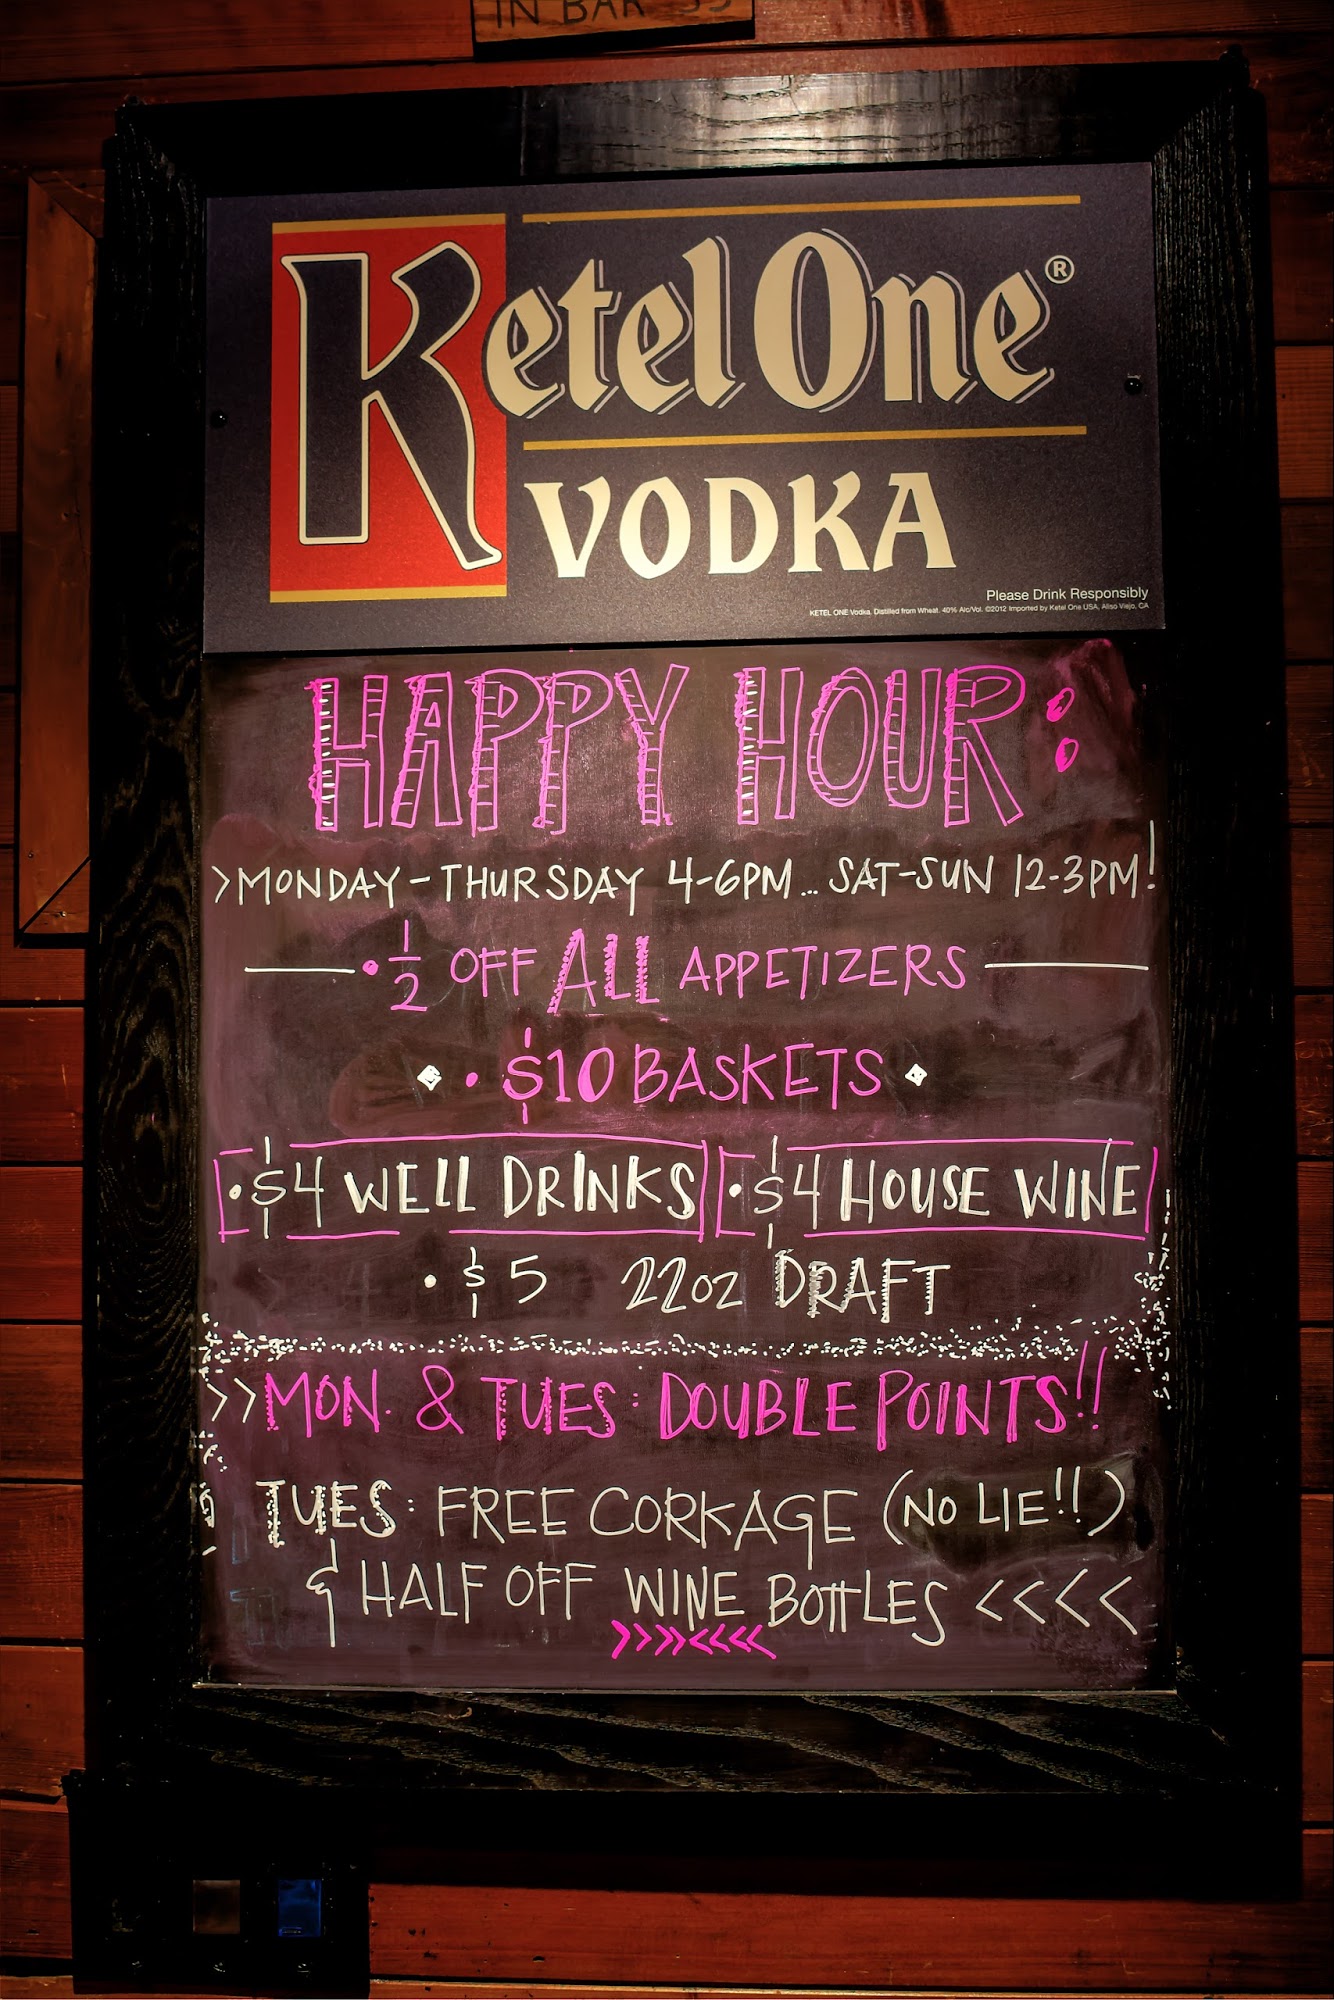 IN BAR
Ketel One®
VODKA
Please Drink Responsibly
KETEL ONE Vodka. Distilled from Wheat. 40% Alc/Vol. ©2012 Imported by Ketel One USA, Aliso Viejo, CA
HAPPY HOUR:
>MONDAY-THURSDAY 4-6PM... SAT-SUN 12-3PM!
• 1/2 OFF ALL APPETIZERS
• $10 BASKETS
• $4 WELL DRINKS • $4 HOUSE WINE
• $5 22oz DRAFT
>>MON. & TUES: DOUBLE POINTS!!
TUES: FREE CORKAGE (NO LIE!!)
& HALF OFF WINE BOTTLES <<<<
>>>><<<<